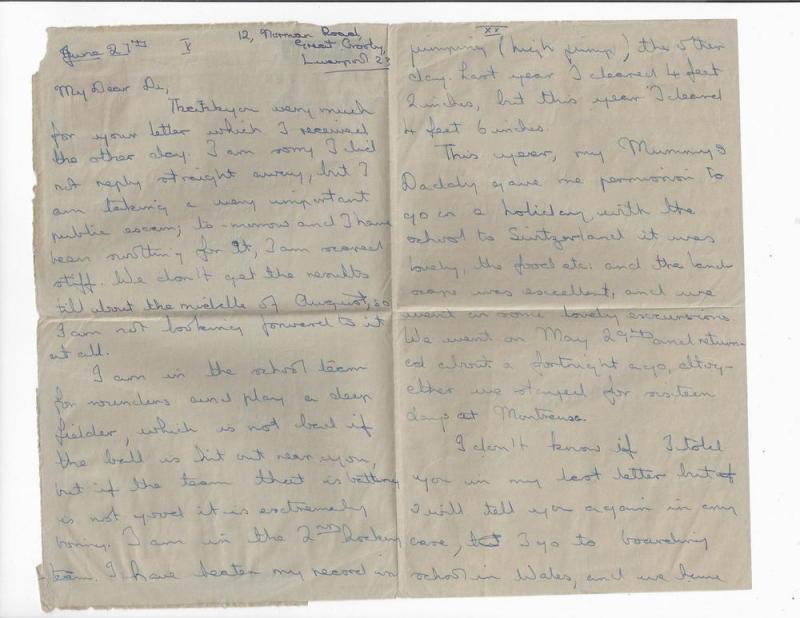 June 27th X 12, Norman Road,
Great Crosby,
Liverpool 23
My Dear Di,
Thankyou very much
for your letter which I received
the other day. I am sorry I did
not reply straight away, but I
am taking a very important
public exam, to-morrow and I have
been swotting for It, I am scared
stiff. We don't get the results
till about the middle of August, so
I am not looking forward to it
at all.
I am in the school team
for rounders and play a deep
fielder, which is not bad if
the ball is hit out near you,
but if the team that is batting
is not good it is extremely
boring. I am in the 2nd hockey
team. I have beaten my record in
XX
jumping (high jump), the other
day. Last year I cleared 4 feet
2 inches, but this year I cleard
4 feet 6 inches.
This year, my Mummy &
Daddy gave me permission to
go on a holiday with the
school to Switzerland it was
lovely, the food etc: and the land-
scape was excellent, and we
went on some lovely excursions.
We went on May 29th and return-
ed about a fortnight ago, altog-
ether we stayed for sixteen
days at Montreux.
I don't know if I told
you in my last letter but
I will tell you again in any
case, I go to boarding
school in Wales, and we have